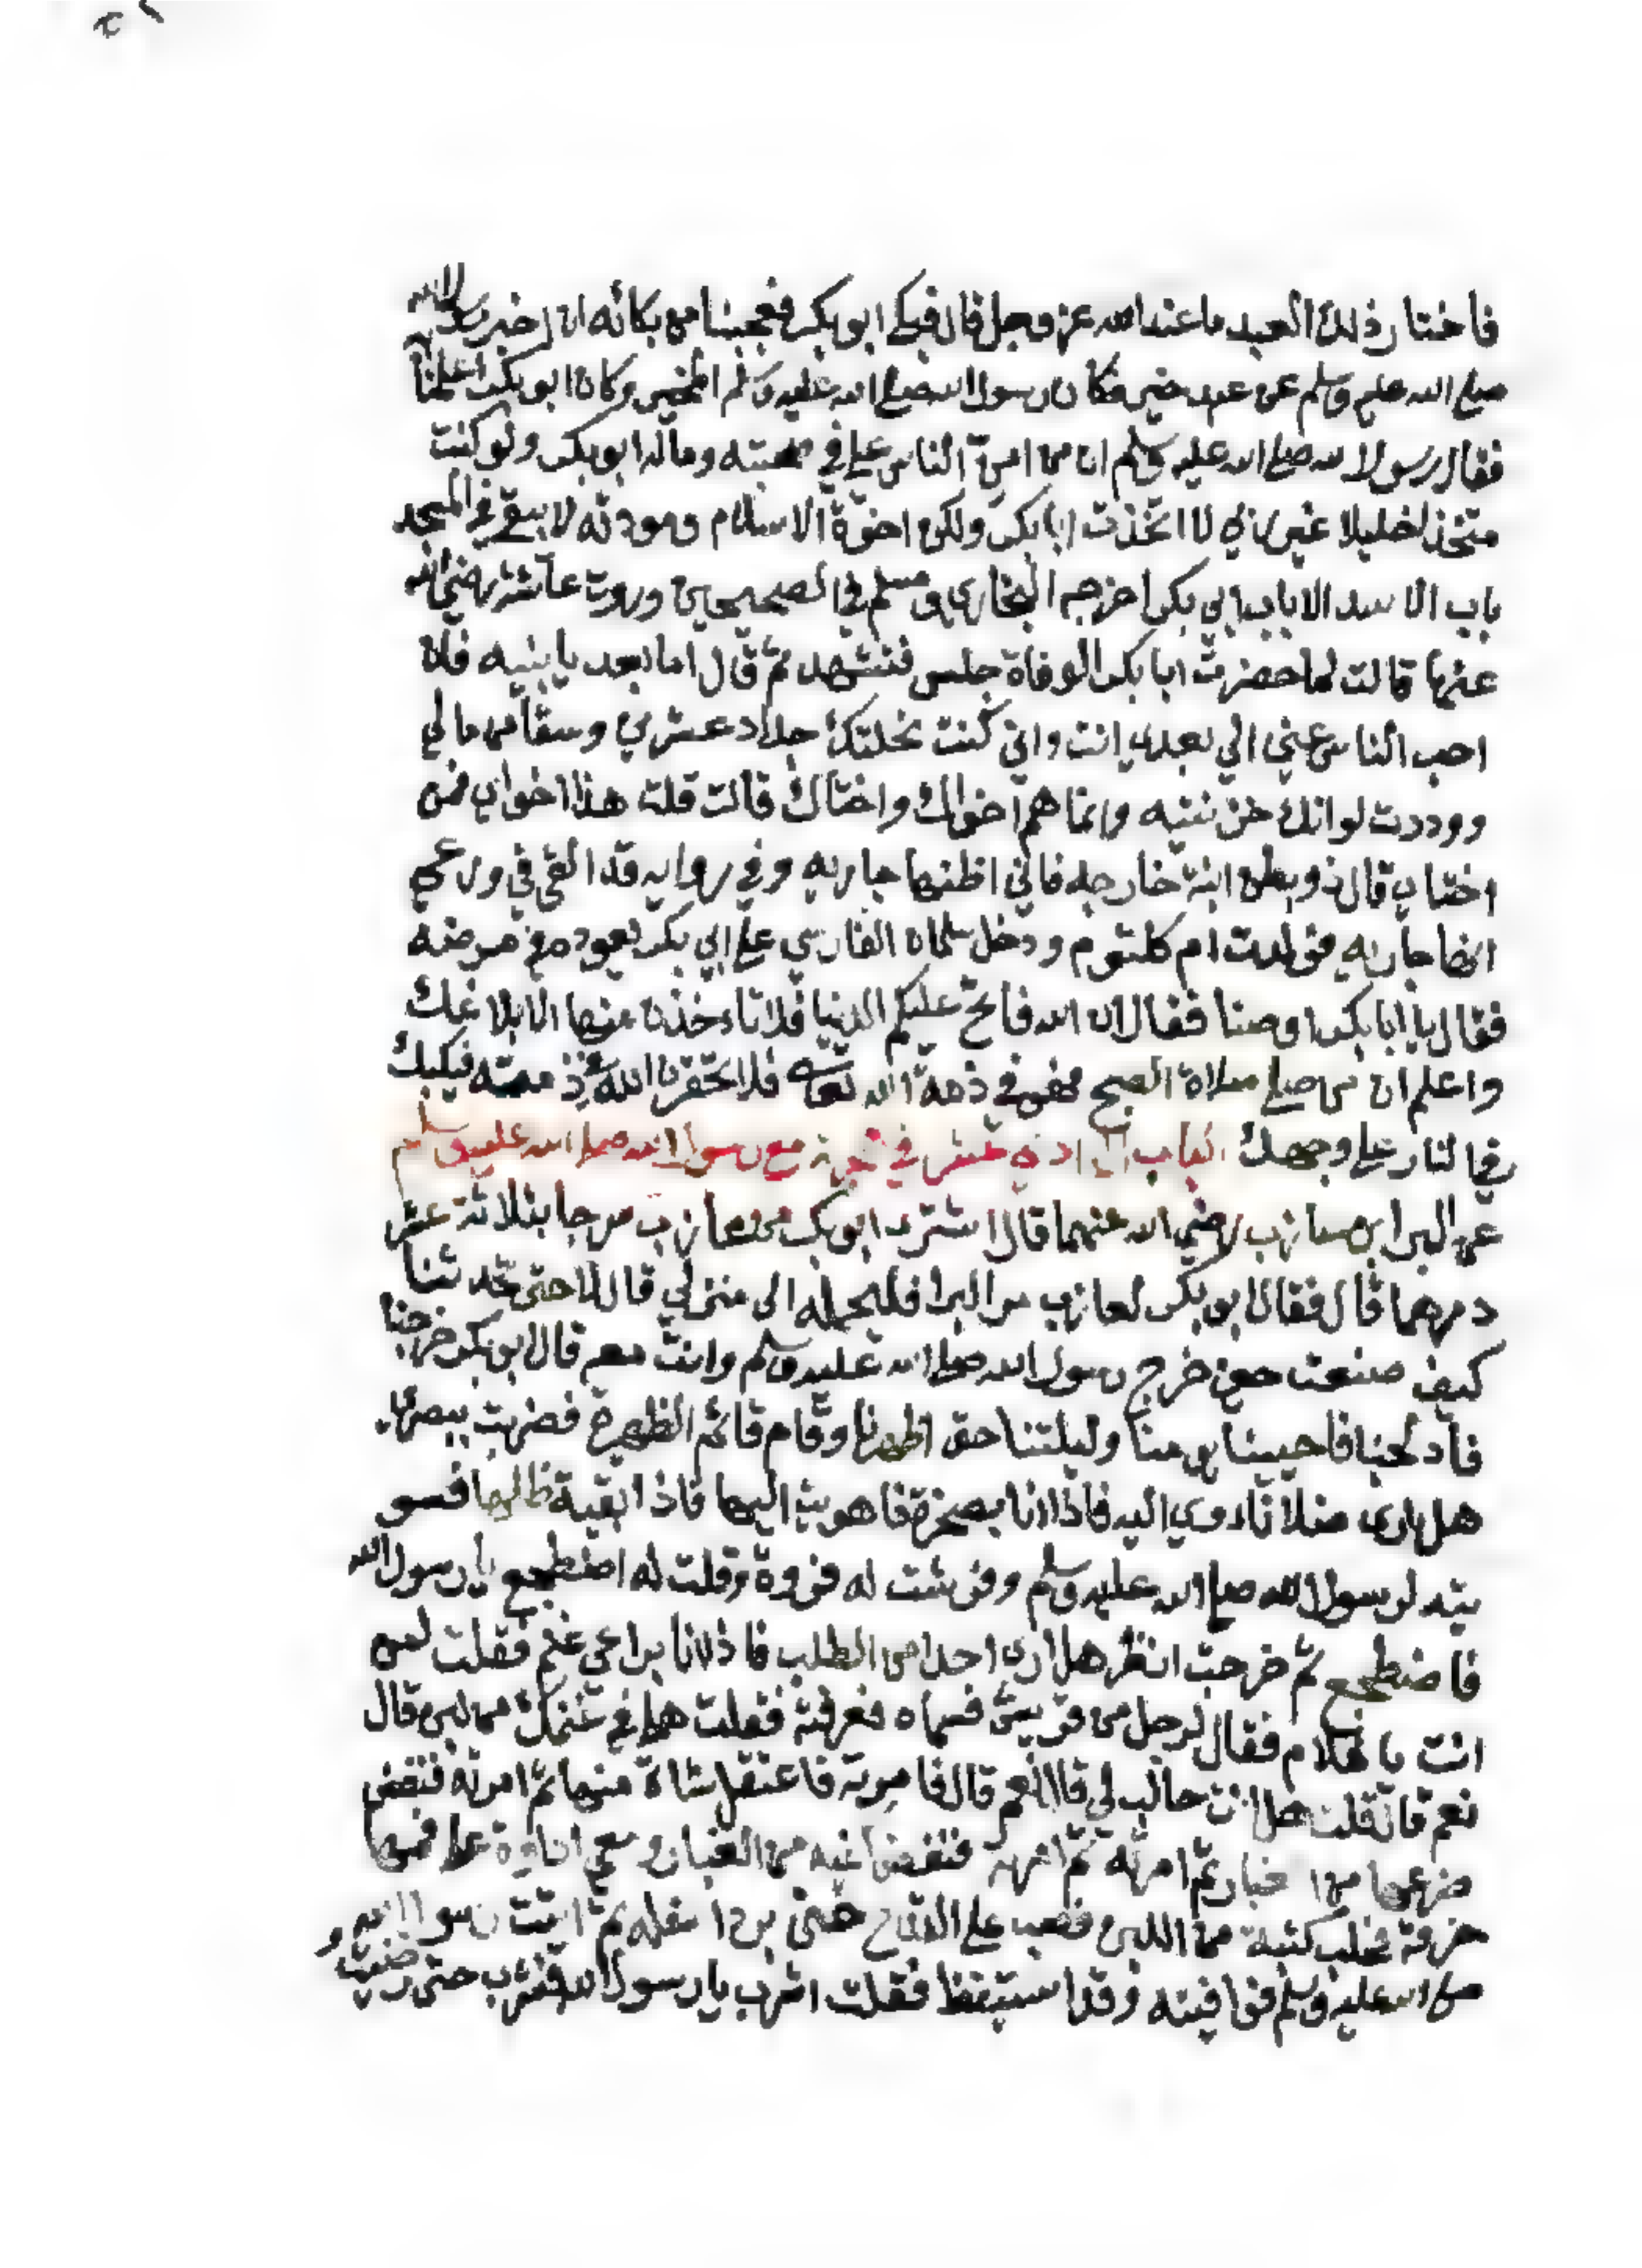 فاختار ذلك العبد ما عند الله عز وجل قال فبكى ابو بكر فعجبنا من بكائه ان اخبر رسول الله
صلى الله عليه وسلم عن عبد خير فكان رسول الله صلى الله عليه وسلم المخير وكان ابو بكر اعلمنا
فقال رسول الله صلى الله عليه وسلم ان من امن الناس علي في صحبته وماله ابو بكر ولو كنت
متخذا خليلا غير ربي لا اتخذت ابا بكر ولكن اخوة الاسلام ومودته لا يبقى في المسجد
باب الا سد الا باب ابي بكر اخرجه البخاري ومسلم في الصحيحين وروت عائشة رضي الله
عنها قالت لما حضرت ابا بكر الوفاة جلس فتشهد ثم قال اما بعد يا بنيه فان
احب الناس غنى الي بعدي انت واني كنت نحلتك جداد عشرين وسقا من مالي
ووددت لو انك حزتيه وانما هم اخواك واختاك قالت قلت هذا اخواي فمن
اختاي قال ذو بطن ابنة خارجه فاني اظنها جاريه وفي روايه قد القي في روعي
انها جاريه فولدت ام كلثوم ودخل سلمان الفارسي على ابي بكر يعوده في مرضه
فقال يا ابا بكر اوصنا فقال ان الله فاتح عليكم الدنيا فلا تاءخذن منها الا بلاغك
واعلم ان من صلى صلاة الصبح فهو في ذمة الله تعالى فلا تحقرن الله في ذمته فيكبك
في النار على وجهك الباب الحادي عشر في هجرته مع رسول الله صلى الله عليه وسلم
عن البرا بن عازب رضي الله عنهما قال اشترى ابو بكر من عازب سرجا بثلاثة عشر
درهما قال فقال ابو بكر لعازب مر البرا فليحمله الى منزلي قال لا حتى تحدثنا
كيف صنعت حين خرج رسول الله صلى الله عليه وسلم وانت معه قال ابو بكر خرجنا
فادلجنا فاحيينا يومنا وليلتنا حتى اظهرنا وقام قائم الظهيرة فضربت ببصري
هل ارى ضلا ناءوي اليه فاذا انا بصخرة فاهويت اليها فاذا بقية ظلها فسو
يته لرسول الله صلى الله عليه وسلم وفرشت له فروة وقلت له اضطجع يا رسول الله
فاضطجع ثم خرجت انظر هل ارى احدا من الطلب فاذا انا براعي غنم فقلت لمن
انت يا غلام فقال لرجل من قريش فسماه فعرفته فقلت هل في غنمك من لبن قال
نعم قال قلت هل انت حالب لي قال نعم قال فامرته فاعتقل شاة منها ثم امرته فنفض
ضرعها من الغبار ثم امرته ثم امرته فنفض كفيه من الغبار ومعي اداوة على فمها
خرقة فحلب كثبة من اللبن فصب على القدح حتى برد اسفله ثم اتيت رسول الله
صلى الله عليه وسلم فوافيته وقد استيقظ فقلت اشرب يا رسول الله فشرب حتى رضيت و